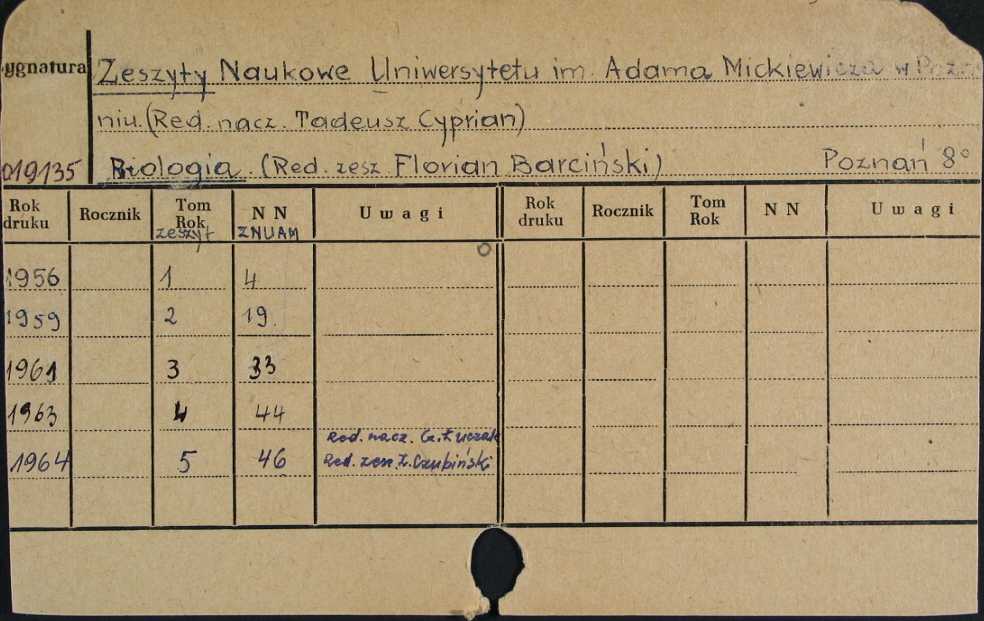 ygnatura Zeszyty Naukowe Uniwersytetu im. Adama Mickiewicza w Pozna
niu. (Red. nacz. Tadeusz Cyprian)
019135 Biologia. (Red. zesz Florian Barciński) Poznań 8°
Rok druku Rocznik Tom Rok zeszyt NN ZNUAM Uwagi Rok druku Rocznik Tom Rok NN Uwagi
1956 1 4
1959 2 19.
1961 3 33
1963 4 44
Red. nacz. G. Łuczak
1964 5 46 Red. zesz. Z. Czubiński